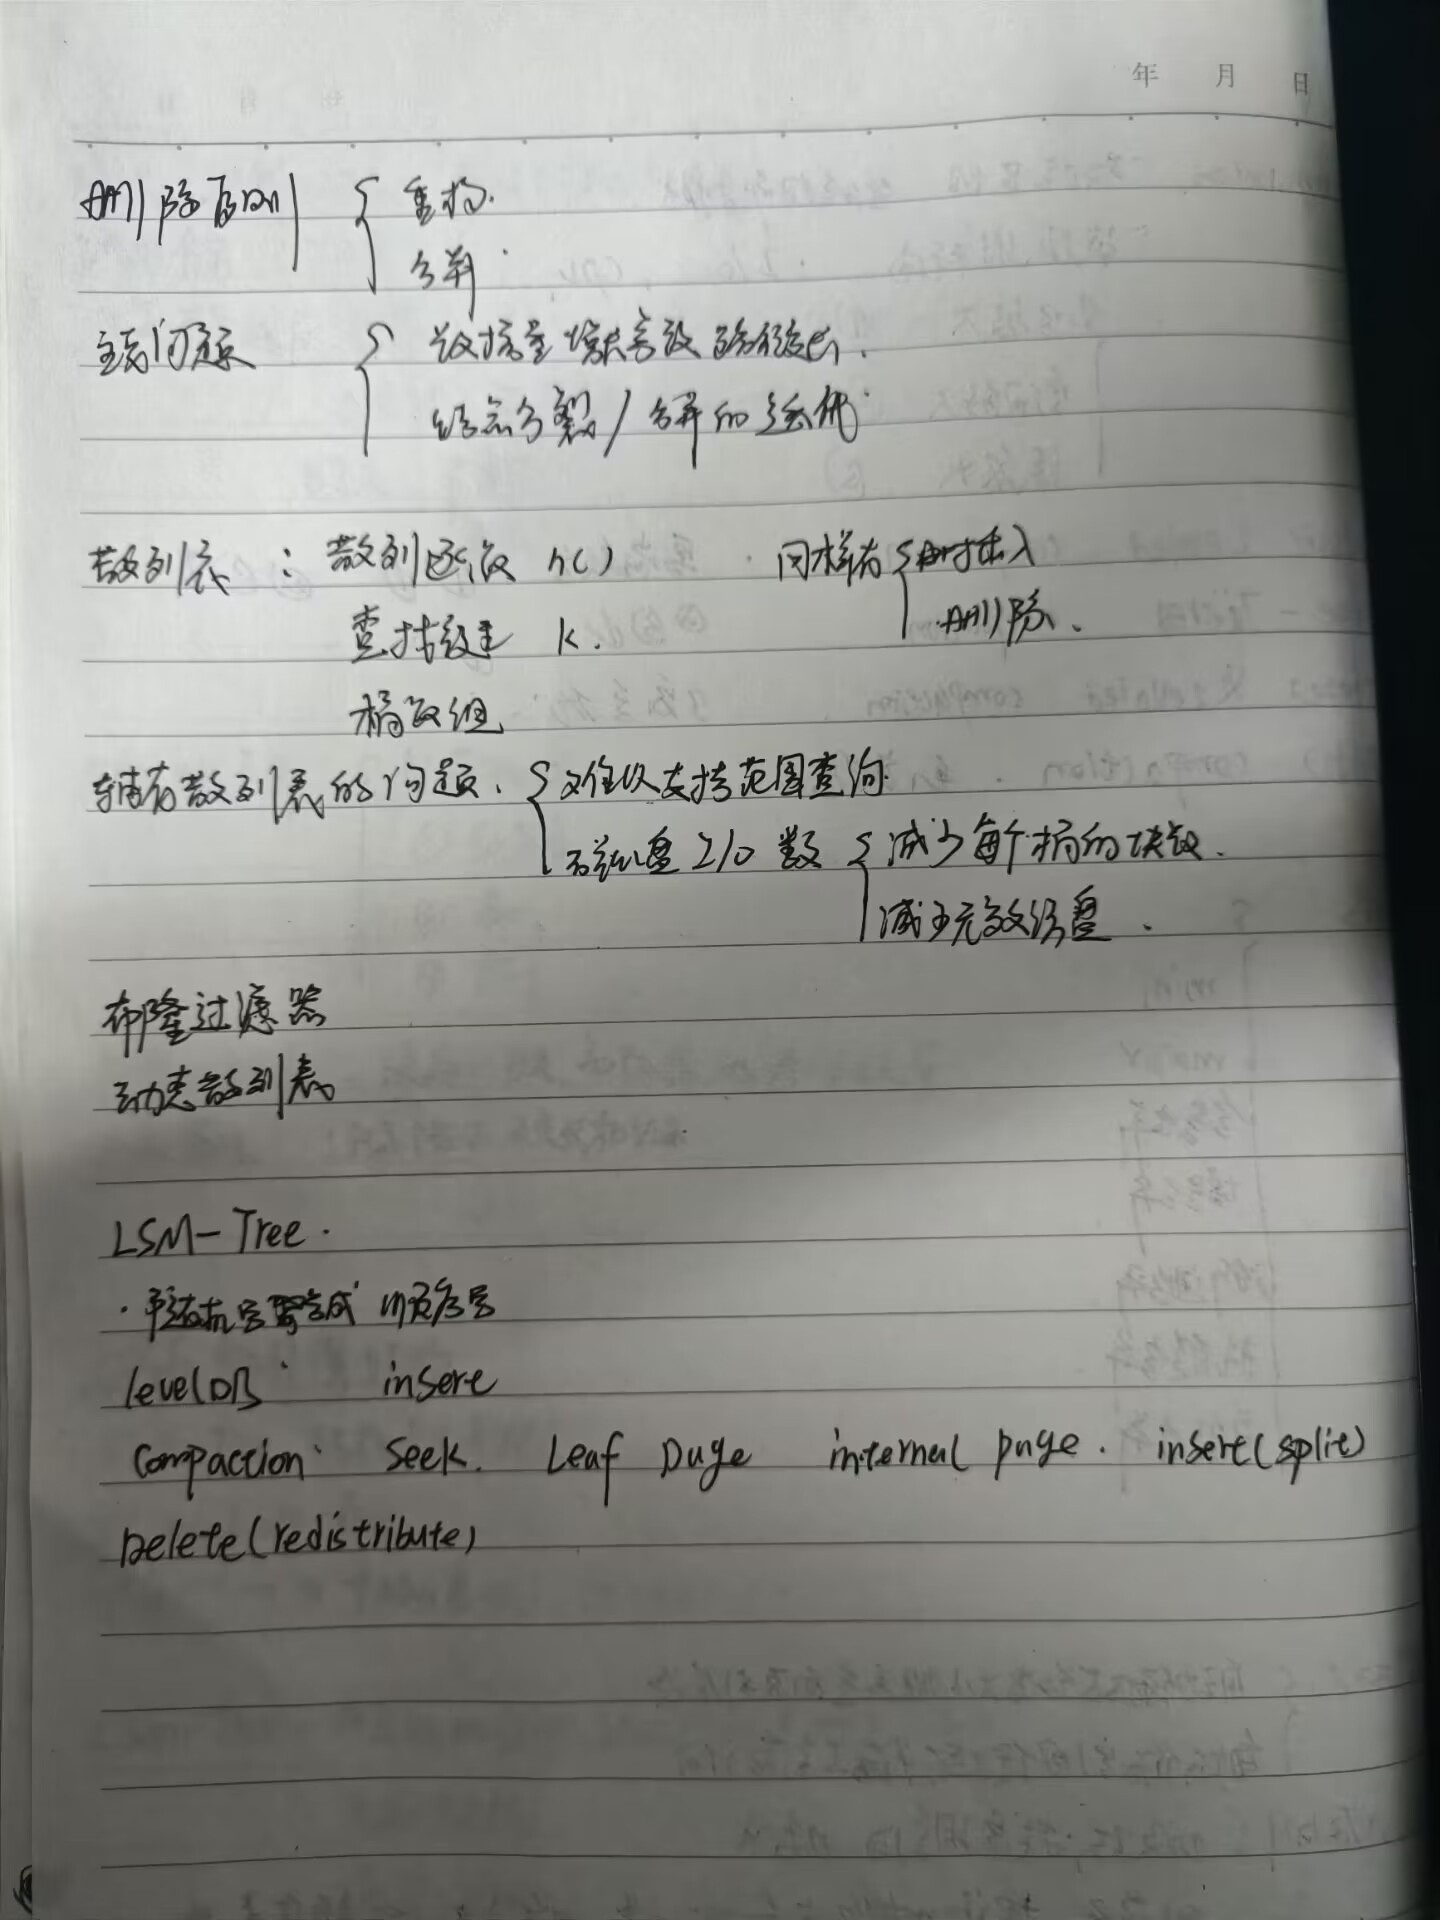 年 月 日
删除原则 { 重构.
合并.
主要问题 { 数据量增长导致路径变长.
结点分裂/合并的代价
散列表 : 散列函数 h() 同样有 { 插入
删除.
查找键 k.
桶数组
辅存散列表的问题. { 难以支持范围查询
磁盘I/O数 { 减少每个桶的块数.
减少无效读盘.
布隆过滤器
动态散列表
LSM-Tree.
· 随机写 成 顺序写
levelDB insert
Compaction Seek. Leaf Page internal page. insert(split)
Delete(redistribute)